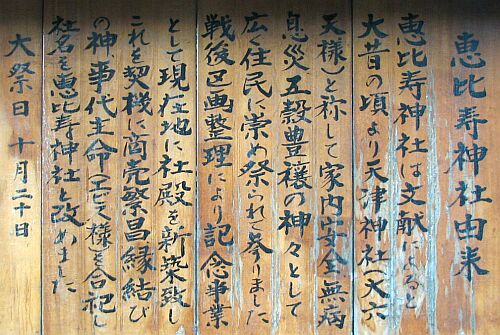 恵比寿神社由来
恵比寿神社は文献によると
大昔の頃より天津神社(大六
天様)と称して家内安全無病
息災五穀豊穣の神々として
広く住民に崇め祭られて参りました
戦後区画整理により記念事業
として現在地に社殿を新築致し
これを契機に商売繁昌縁結び
の神事代主命(エビス様)を合祀し
社名を恵比寿神社と改めました
大祭日 十月二十日